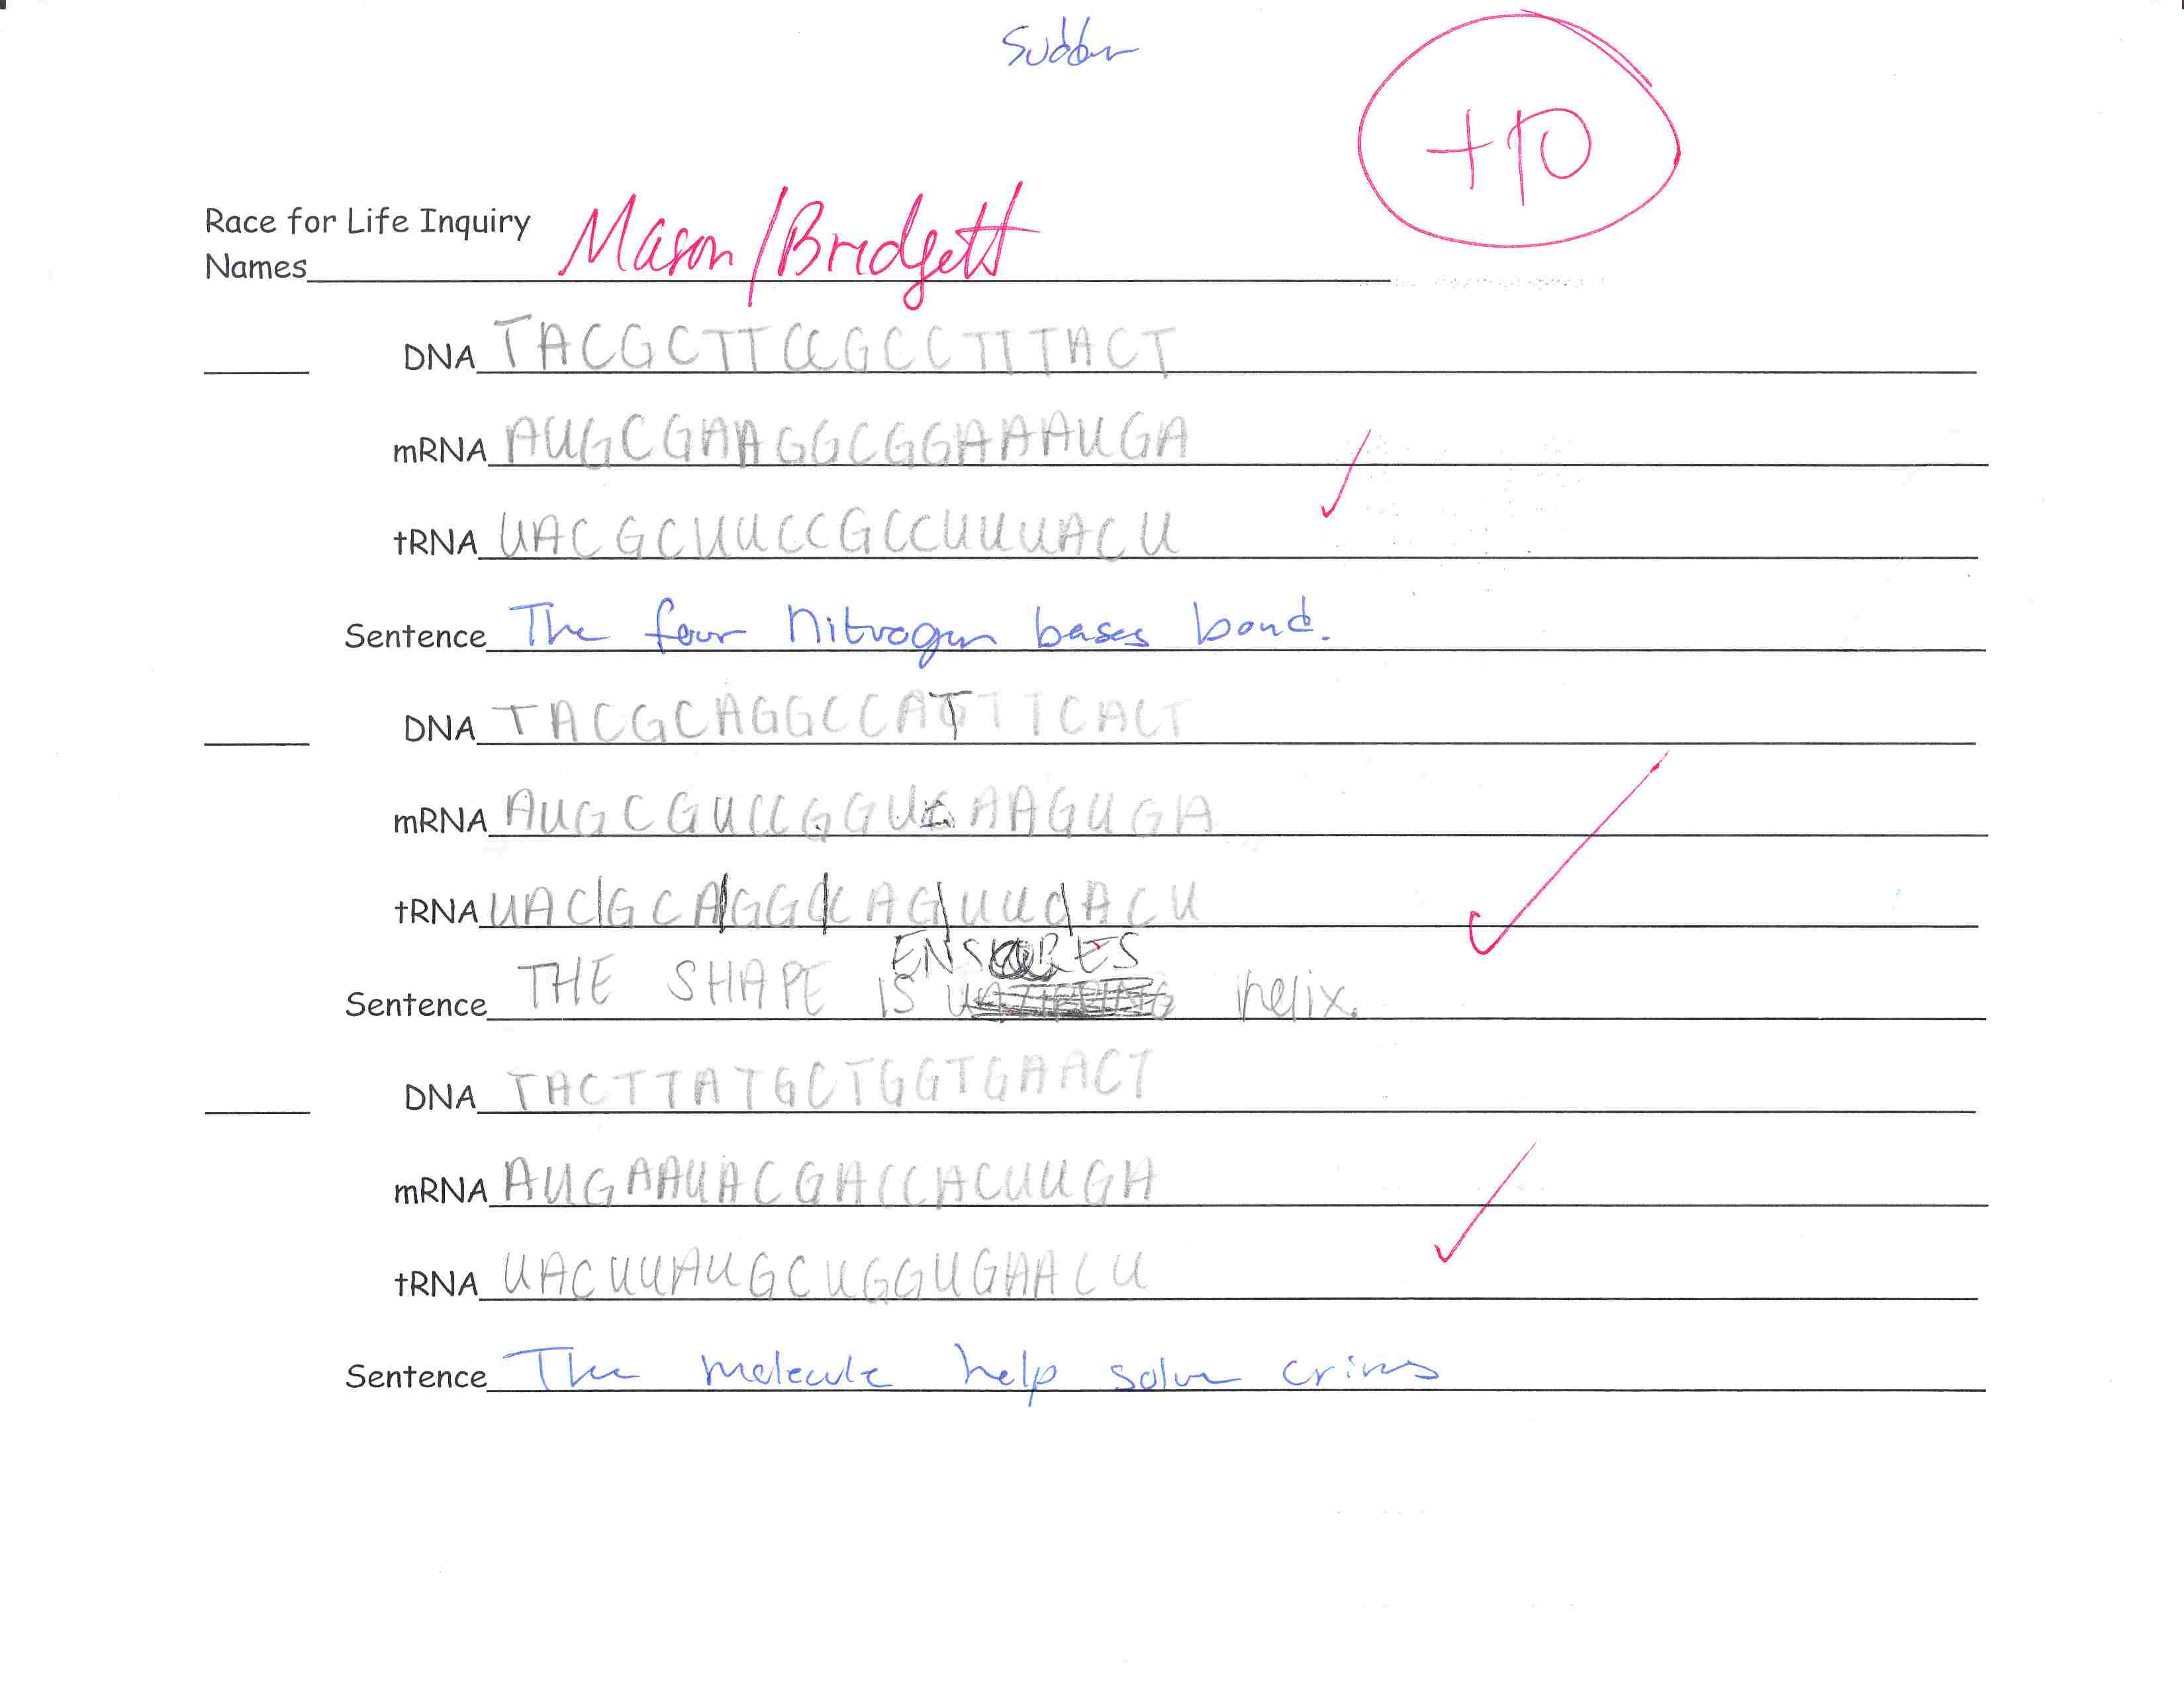 +10
Race for Life Inquiry
Names Mason/Bridgett
DNA TACGCTTCCGCCTTTTACT
mRNA AUGCGAAGGCGGAAAAUGA
tRNA UACGCUUCCGCCUUUUACU
Sentence The four Nitrogen bases bond.
DNA TACGCAGGCCCATTTCACT
mRNA AUGCGUCCGGU AAGUGA
tRNA UAC|GCA|GGC|CAG|UUC|ACU
ENSURES
Sentence THE SHAPE IS helix.
DNA TACTTATGCTGGTGAACT
mRNA AUGAAUACGACCACUUGA
tRNA UACUUAUGCUGGUGAACU
Sentence The molecule help solve crimes